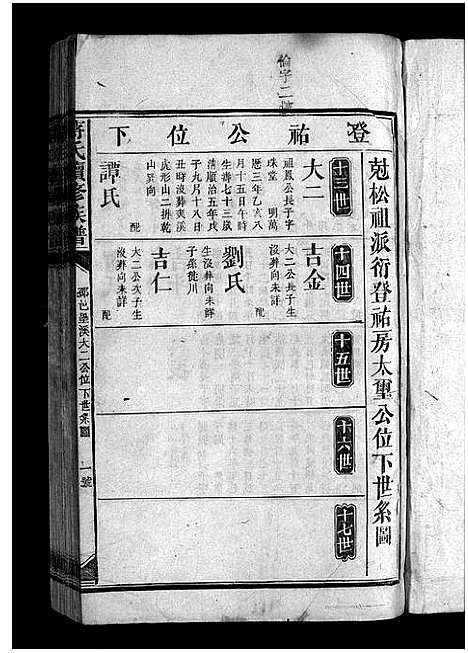 倫字二號
尅松祖派衍登祐房太璽公位下世系圖
登祐公位下
十三世
大二
祖鳳公長子字
珠堂 明萬
歷三年乙亥八
月十五日午時
生壽七十三歲
清順治五年戊
子九月十八日
丑時沒葬夾溪
虎形山二排乾
山巽向 配
譚氏
十四世
吉金
大二公長子生
沒葬向未詳
配
劉氏
生沒葬向未詳
子孫徙川
吉仁
大二公次子生
沒葬向未詳
配
十五世
十六世
十七世
氏續修族譜
大二公位下世系圖
一號